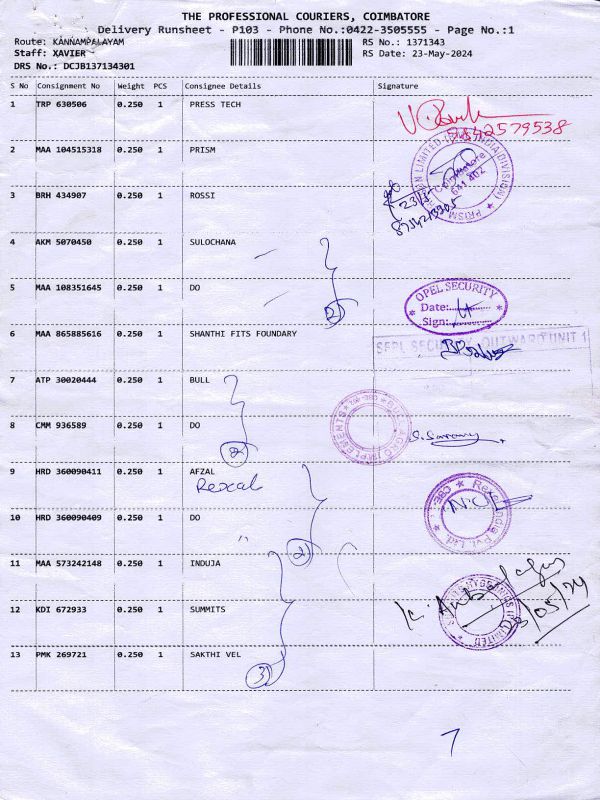 THE PROFESSIONAL COURIERS, COIMBATORE
Delivery Runsheet - P103 - Phone No.:0422-3505555 - Page No.:1
Route: KANNAMPALAYAM RS No.: 1371343
Staff: XAVIER RS Date: 23-May-2024
DRS No.: DCJB137134301
S No Consignment No Weight PCS Consignee Details Signature
1 TRP 630506 0.250 1 PRESS TECH
9842579538
2 MAA 104515318 0.250 1 PRISM
Coimbatore
641 402
3 BRH 434907 0.250 1 ROSSI
23/5
8754213305
4 AKM 5070450 0.250 1 SULOCHANA
5 MAA 108351645 0.250 1 DO
2
OPEL SECURITY
Date:
Sign:
6 MAA 865885616 0.250 1 SHANTHI FITS FOUNDARY
SFPL SECURITY OUTWARD UNIT 1
7 ATP 30020444 0.250 1 BULL
8 CMM 936589 0.250 1 DO
2
BULL AGRO IMPLEMENTS CBE
9 HRD 360090411 0.250 1 AFZAL
Rexcal
10 HRD 360090409 0.250 1 DO
"
2
11 MAA 573242148 0.250 1 INDUJA
12 KDI 672933 0.250 1 SUMMITS
23/05/24
13 PMK 269721 0.250 1 SAKTHI VEL
3
7